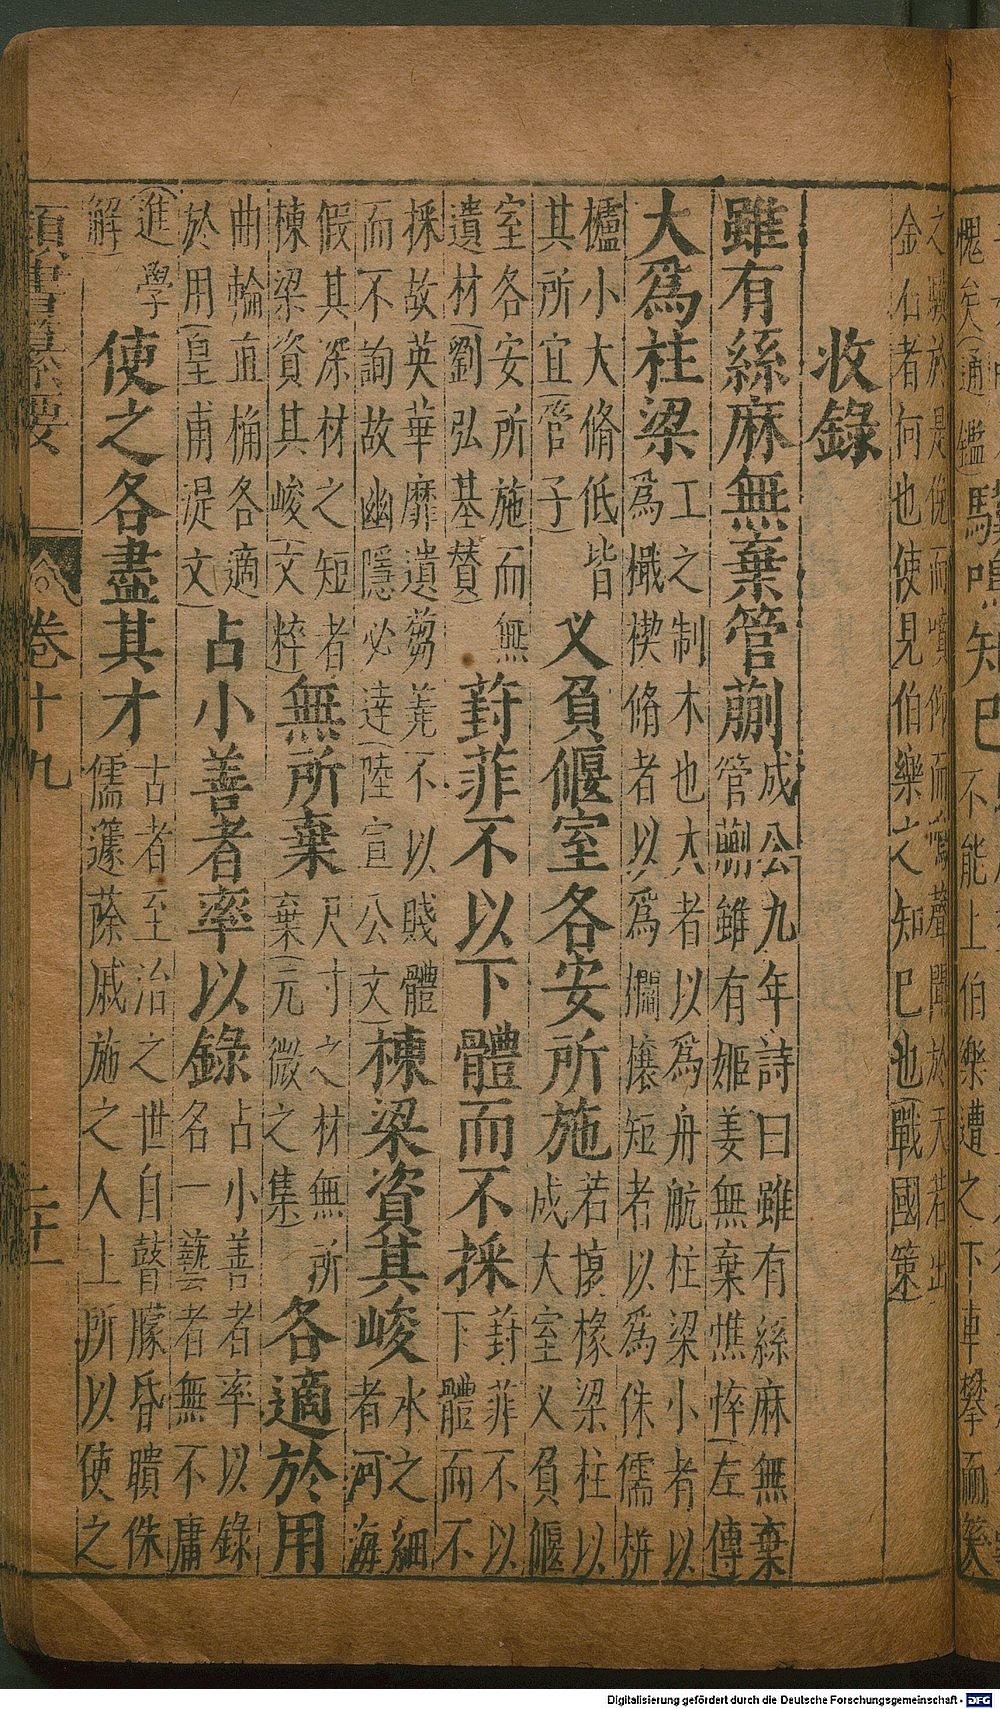 愧矣(通鑑
知己
不能上伯樂遭之下車攀而
之驥於是俛而噴仰而鳴聲聞於天若出
金石者何也使見伯樂之知已也(戰國策
收錄
雖有絲麻無棄管蒯
成公九年詩曰雖有絲麻無棄
管蒯雖有姬姜無棄憔悴(左傳
大爲柱梁
工之制木也大者以爲舟航柱梁小者以
爲檝楔脩者以爲櫩榱短者以爲侏儒枅
櫨小大脩低皆
其所宜(管子)
乂負偃室各安所施
若椽梁柱以
成大室乂負偃
室各安所施而無
遺材(劉弘基贊)
葑菲不以下體而不採
葑菲不以
下體而不
採故英華靡遺芻蕘不以賤體
而不詢故幽隱必達(陸宣公文)
棟梁資其峻
水之細
者河海
假其深材之短者
棟梁資其峻(文粹)
無所棄
尺寸之材無所
棄(元微之集)
各適於用
曲輪直桷各適
於用(皇甫湜文)
占小善者率以錄
占小善者率以錄
名一藝者無不庸
(進學
解)
使之各盡其才
古者至治之世自瞽矇昏聵侏
儒籧篨戚施之人上所以使之
類書纂要
卷十九
二十一
Digitalisierung gefördert durch die Deutsche Forschungsgemeinschaft - DFG